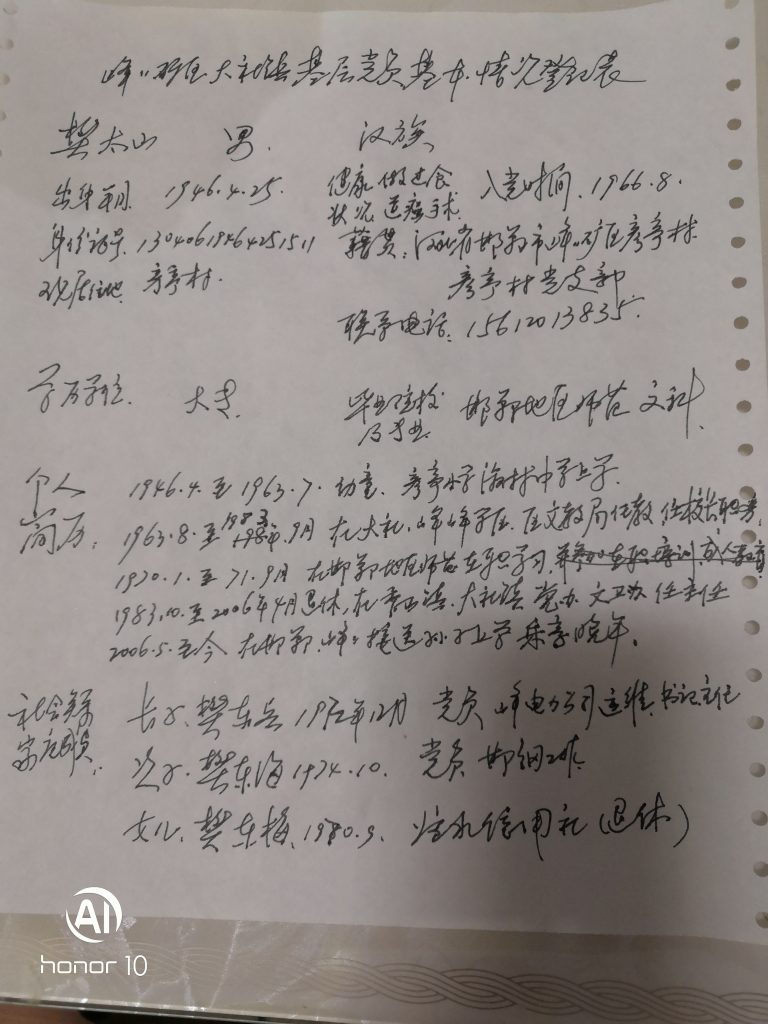 峰峰矿区大社镇基层党员基本情况登记表
樊太山 男. 汉族
出生年月 1946.4.25. 健康状况 做过食道癌手术 入党时间. 1966.8.
身份证号. 籍贯: 河北省邯郸市峰峰矿区彦亭村.
现居住地. 彦亭村. 彦亭村党支部
联系电话: 15612013835.
学历学位. 大专. 毕业院校及专业. 邯郸地区师范 文科
个人 1946.4.至1963.7. 幼童. 彦亭小学 中学上学.
简历: 1963.8.至1983.9月 在大社.峰峰学区.区文教局任教 任校长职务,
1970.1.至71.9月 在邯郸地区师范在职学习
1983.10.至2006年4月退休,在 大社镇 党办 文卫办 任主任
2006.5.至今 在邯郸.峰峰接送孙子上学 乐享晚年.
社会关系 长子.樊东岳 1972年12月 党员 峰峰电力公司 书记主任
家庭成员: 次子.樊东海 1974.10. 党员 邯钢工作.
女儿.樊东梅.1980.9. 信用社(退休)
AI
honor 10